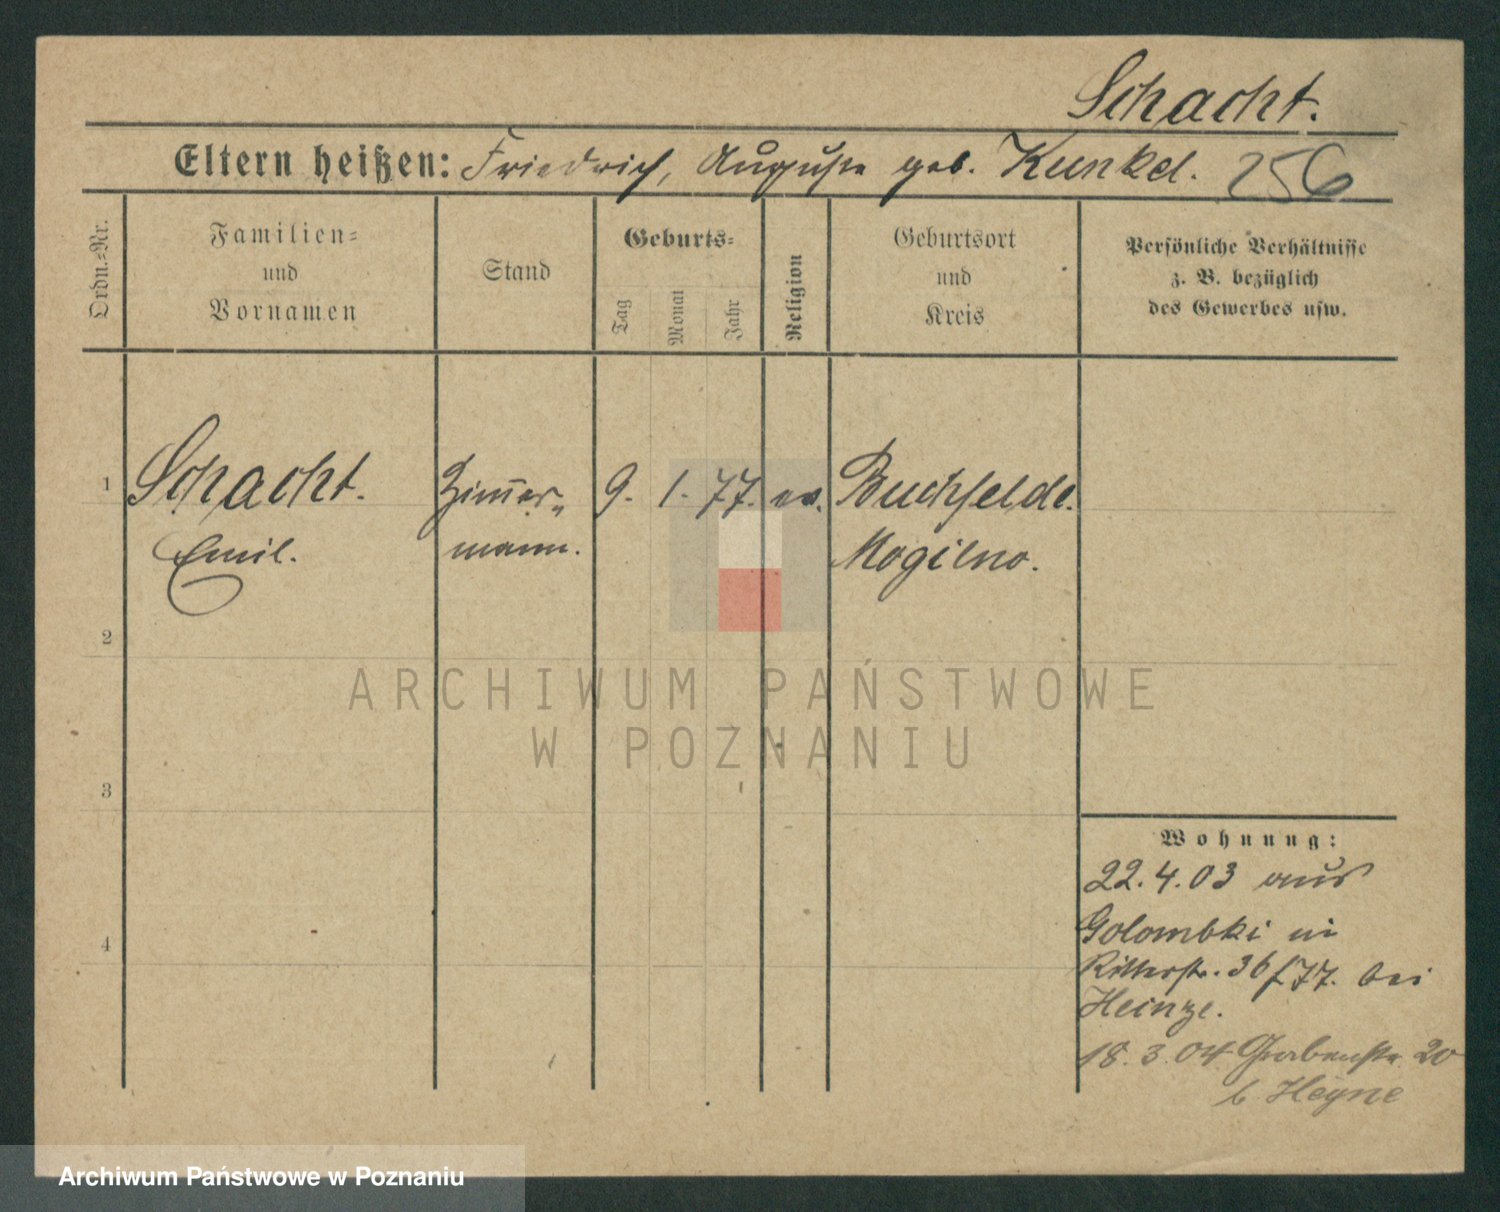 Schacht.
Eltern heißen: Friedrich, Auguste geb. Kunkel. 256
Ordn.-Nr.
Familien-
und
Vornamen
Stand
Geburts-
Tag
Monat
Jahr
Religion
Geburtsort
und
Kreis
Persönliche Verhältnisse
z. B. bezüglich
des Gewerbes usw.
1 Schacht. Zim̅er- 9. 1. 77. ev. Buchfelde.
Emil. mann. Mogilno.
2
ARCHIWUM PAŃSTWOWE
W POZNANIU
3
Wohnung:
22.4.03 aus
Golombki in
4
Ritterstr. 36/77. bei
Heinze.
18.3.04 Grabenstr. 20
b. Heyne
Archiwum Państwowe w Poznaniu